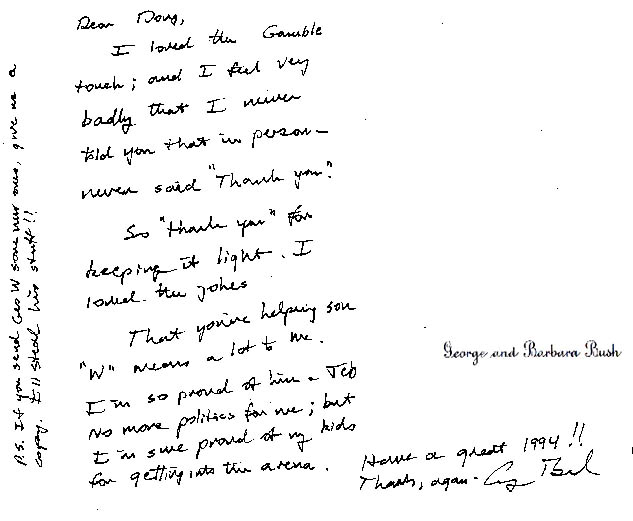 Dear Doug,
I loved the Gamble
touch; and I feel very
badly that I never
told you that in person –
never said "Thank you".
So "thank you" for
keeping it light. I
loved the jokes
That you're helping son
"W" means a lot to me.
I'm so proud of him & Jeb
No more politics for me; but
I'm sure proud of my kids
for getting into the arena.
Have a great 1994!!
Thanks, again -
George and Barbara Bush
P.S. If you send Geo W some new ones, give me a
copy. I'll steal his stuff!!